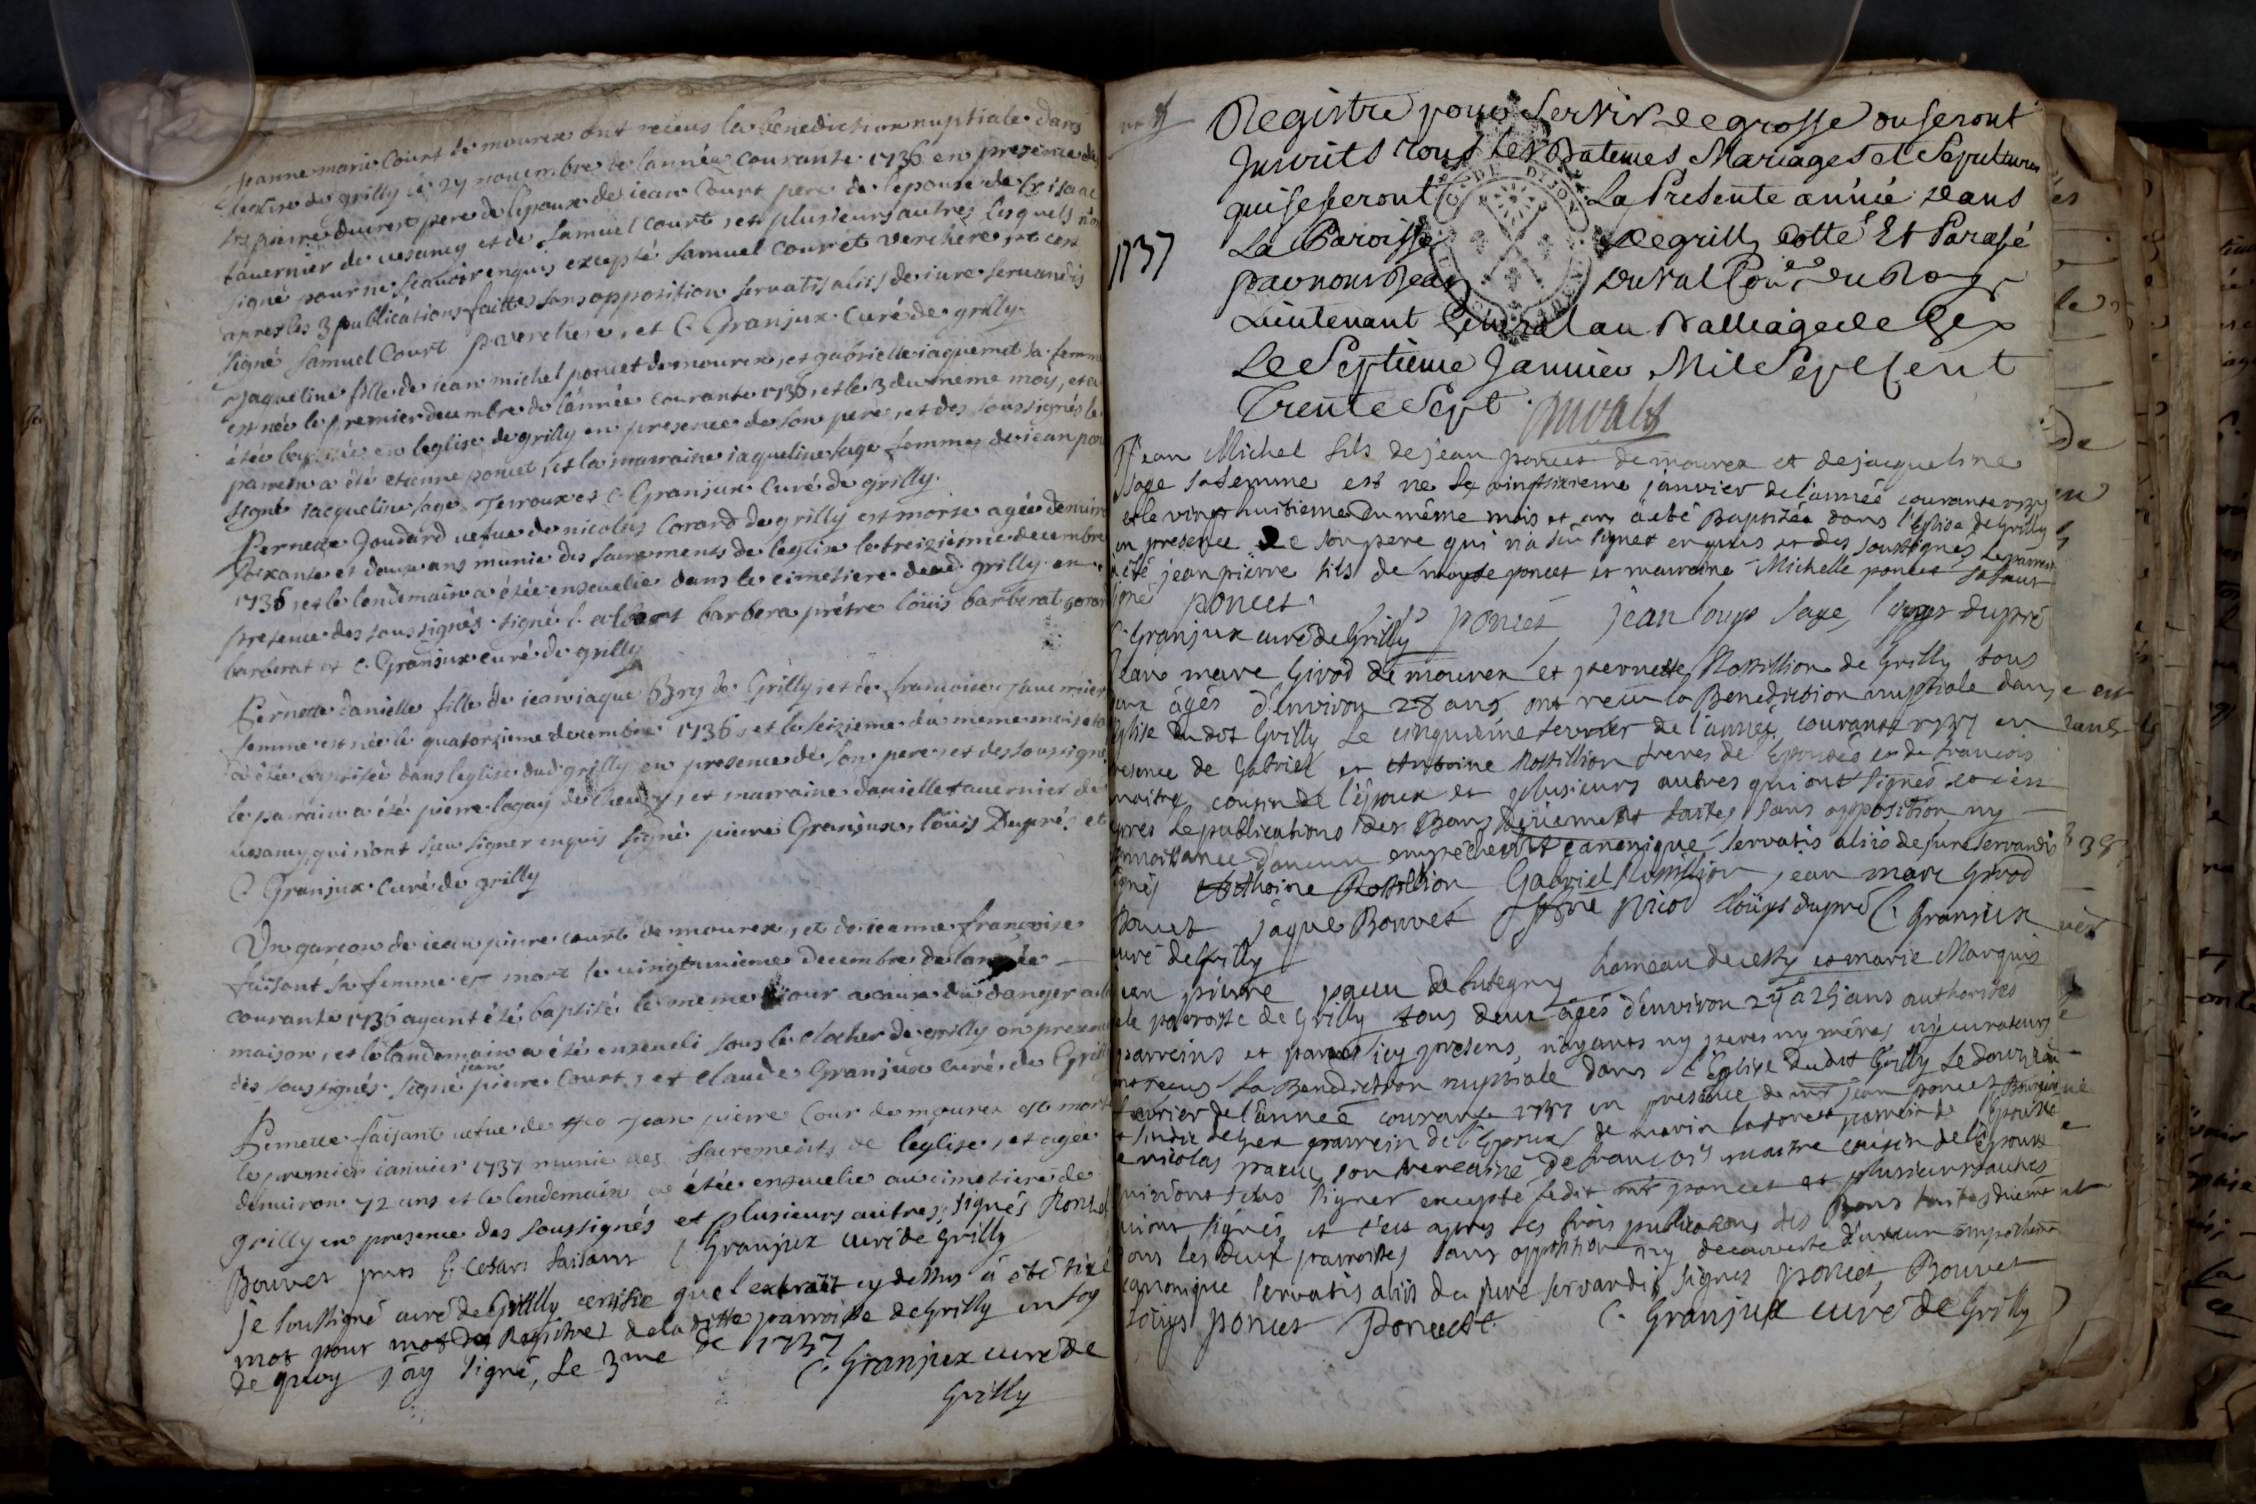 jeanne marie Court de mourex ont receus la benediction nuptiale dans
leglise de grilly le 27 novembre de lannéé courante 1736 en presence de
pierre duivet pere de lepoux de jean Court pere de lepouse de isaac
tavernier de vesancy et de Samuel Court, et plusieurs autres lesquels n'ont
signé pour ne scavoir enquis excepté Samuel Cour et verchere, et cest
apres les 3 publications faittes sans opposition servatis aliis de iure servandis
signé Samuel Court p verchere, et C. Granjux Curé de grilly.
Jaqueline fille de jean michel poncet de mourex, et gabrielle iaquemet sa femme
est néé le premier decembre de lannéé courante 1736, et le 3 du meme mois, et a
étéé baptiséé en leglise de grilly en presence de son pere, et des soussignés le
parrein a été etienne poncet, et la marraine iaqueline sage femme de iean pon
signé iaqueline sage Terroux et C. Granjux Curé de grilly.
Pernette Joudard vefve de nicolas Corard de grilly est morte agéé denviron
soixante et deux ans munie des sacrements de leglise le treizieme decembre
1736, et le lendemain a étéé ensevelie dans le cimetiere dud grilly en
presence des soussignés signé barbera prétre loüis barberat
barberat et C. Granjux curé de grilly
Pernette danielle fille de iean iaque Bry de Grilly, et de francoise tavernier
femme est néé le quatorzieme decembre 1736, et le seizieme du meme mois, et a
a étéé baptiséé dans leglise dud grilly en presence de son pere, et des soussignés
le parrain a été pierre lagay de et marraine danielle tavernier de
vesancy, qui n'ont sceu signer enquis signé pierre Granjux, loüis Dupré, et
C. Granjux Curé de grilly
Un garcon de iean pierre court de mourex, et de ieanne francoise
faisant sa femme est mort le vingtunieme Decembre de lannéé
courante 1736 ayant été baptisé le meme iour a cause du danger a la
maison, et le landemain a été enseveli sous le clocher de grilly en presence
des soussignés signé jean pierre Court, et claude Granjux curé de Grilly
Pernette faisant vefve de jean pierre Cour de mourex est morte
le premier ianvier 1737 munie des sacrements de leglise, et agéé
denviron 72 ans et le lendemain a étéé ensevelie au cimetiere de
grilly en presence des soussignés et plusieurs autres, signés Poncet
Bouvet Cesars faisans C Granjux curé de Grilly
je soussigné curé de Grilly certifie que l'extrait cy dessus à été tiré
mot pour mot des Registres de la ditte parroisse de Grilly en foy
de quoy j'ay signé, le 3me de 1737
C. Granjux curé de
Grilly
Registre pour Servir de grosse ou seront
Inscrits tous les Batemes Mariages et Sepultures
qui se feront La Presente année dans
1737
La Paroisse de grilly Cotté Et Parafé
par nous Jean duval Con.er du Roy
Lieutenant General au Balliage de Gex
Le Septieme Janvier Mil Sept Cent
Trente Sept. Duval
Jean Michel fils de jean poncet de mourex et de jacqueline
Sage sa femme est ne le vingtsixieme janvier de l'année courante 1737
et le vingt huitieme du même mois et an a eté Baptizée dans l'Eglise de Grilly
en presence de son pere qui n'a sçu signer enquis et des soussignés le parrein
a été jean pierre fils de moyse poncet et marreine Michelle poncet
signé poncet poncet, jean louys sage, louys dupré
C. Granjux curé de Grilly
Jean marc Girod de mourex et pernette Rossillion de Grilly tous
deux âgés d'environ 28 ans, ont receu la Benediction nuptiale dans
l'eglise du dit Grilly le cinquieme fevrier de l'année courante 1737 en
presence de Gabriel et Antoine Rossillion freres de l'Epousée et de francois
maitre cousin de l'époux et plusieurs autres qui ont signés et c'est
apres le publications des Bans düement faites sans opposition ny
connoissance d'aucun empechement canonique servatis aliis de jure servandis
signés Anthoine Rossillion Gabriel Rossillion, jean marc Girod
Bouvet jaque Bouvet picod loüys dupré C. Granjux
curé de Grilly
jean pierre pacu de hameau de cessy et marie Marquis
de la parroisse de Grilly tous deux âgés d'environ 24 a 25 ans authorisés
parreins et parens icy presens, n'ayants ny peres ny méres ny curateurs
ont receus la Benediction nuptiale dans l'Eglise du dit Grilly le douzieme
fevrier de l'année courante 1737 en presence de mr jean poncet Bourgeois
et sindic de Gex parrein de l'Epoux de parrein de l'Epouse
de nicolas pacu son frere ainé de françois maitre cousin de l'Epouse
qui n'ont sçus signer excepté ledit mr poncet et plusieurs autres
qui ont signés et c'est apres les trois publications des Bans faites düement
dans les deux parroisses sans opposition ny decouverte d'aucun empechement
canonique servatis aliis de jure servandis signés poncet, Bouvet
loüys poncet Poncet C. Granjux curé de Grilly